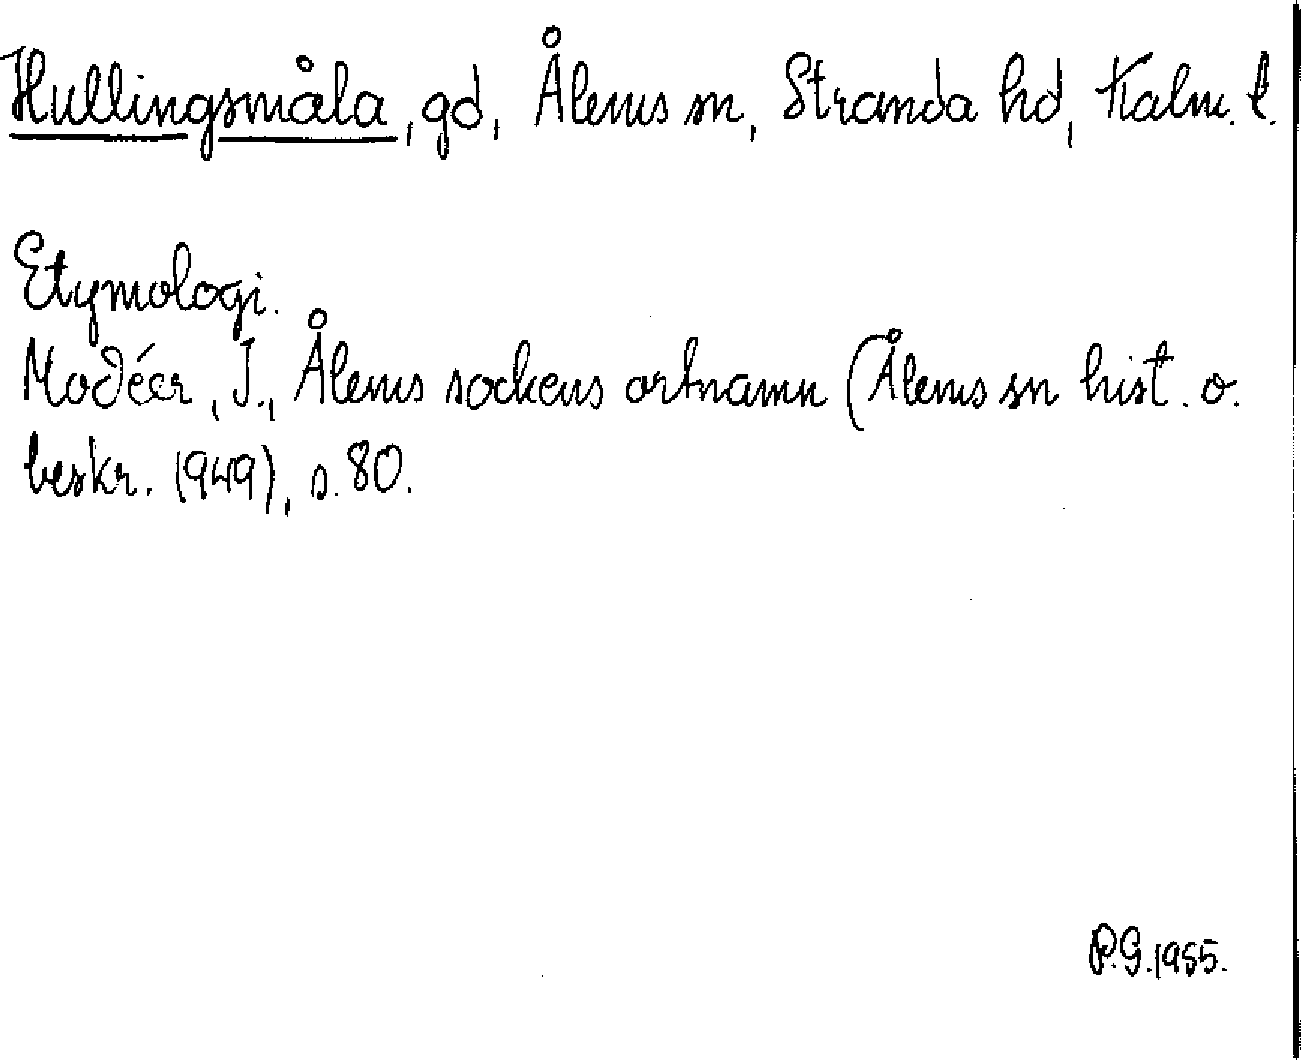 Hullingsmåla, gd, Ålems sn, Stranda hd, Kalm. l.
Etymologi.
Modéer, I., Ålems sockens ortnamn (Ålems sn hist. o.
beskr. (949), s. 80.
P.G. 1955.